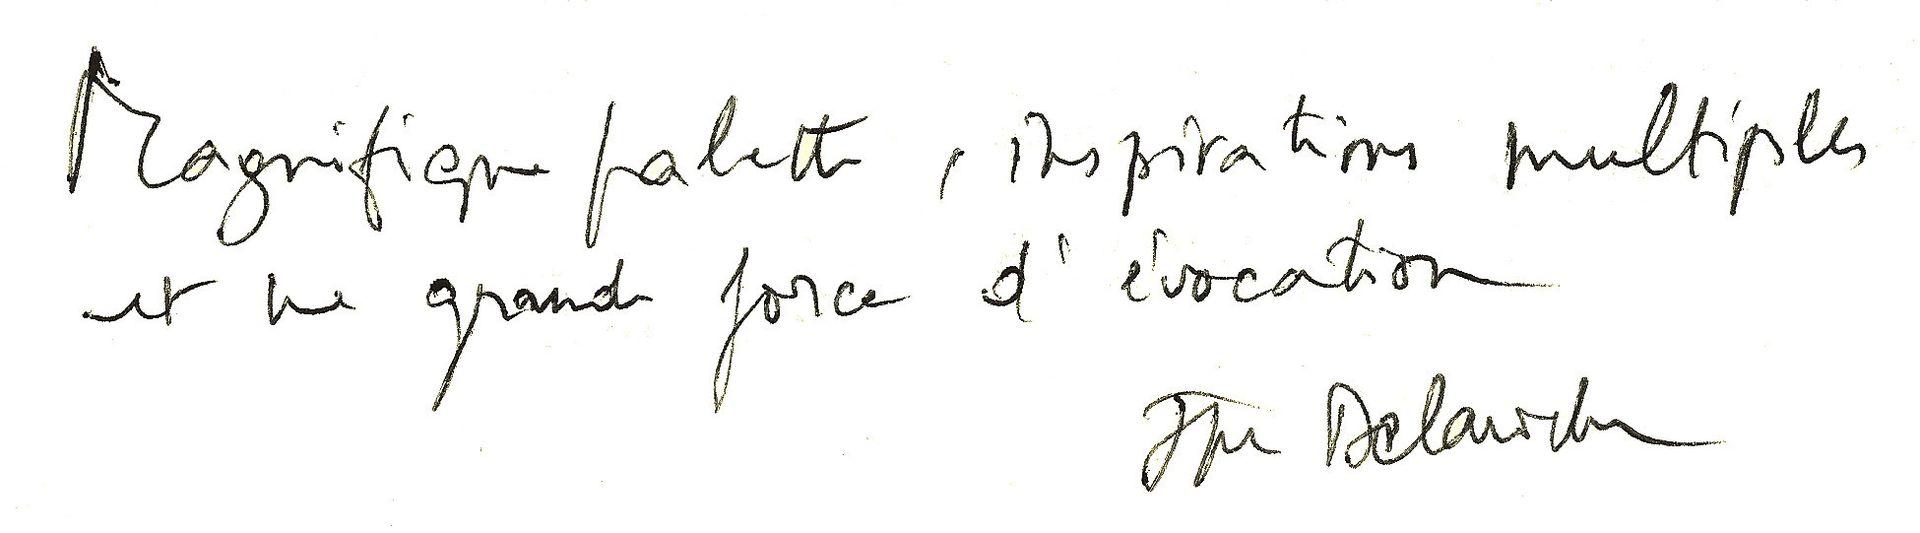 Magnifique palette, inspirations multiples
et une grande force d'évocation